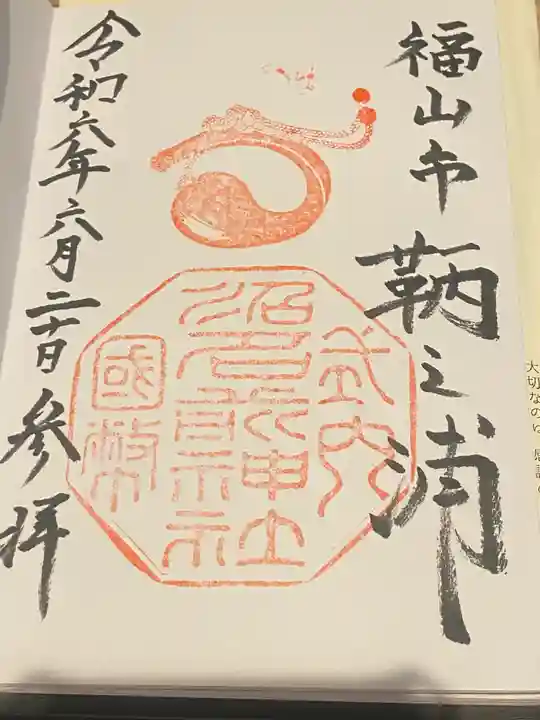 福山市鞆之浦
式内
沼名前神社
國幣
令和六年六月二十日参拝